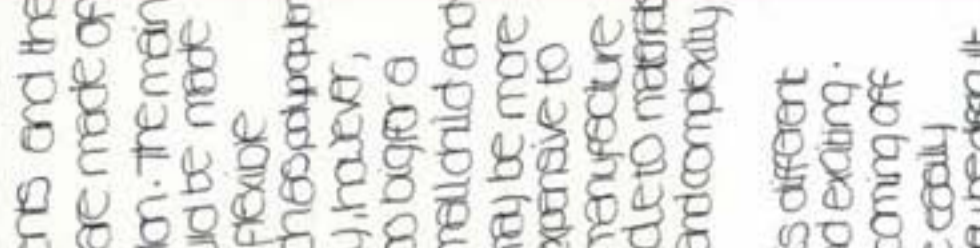 nts and the
are made of
on. The main
ld be made
flexible
h as polypropylen
y, however,
oo big for a
mall child and
may be more
expensive to
manufacture
due to material
and complexity
s different
d exciting.
oming off
easily